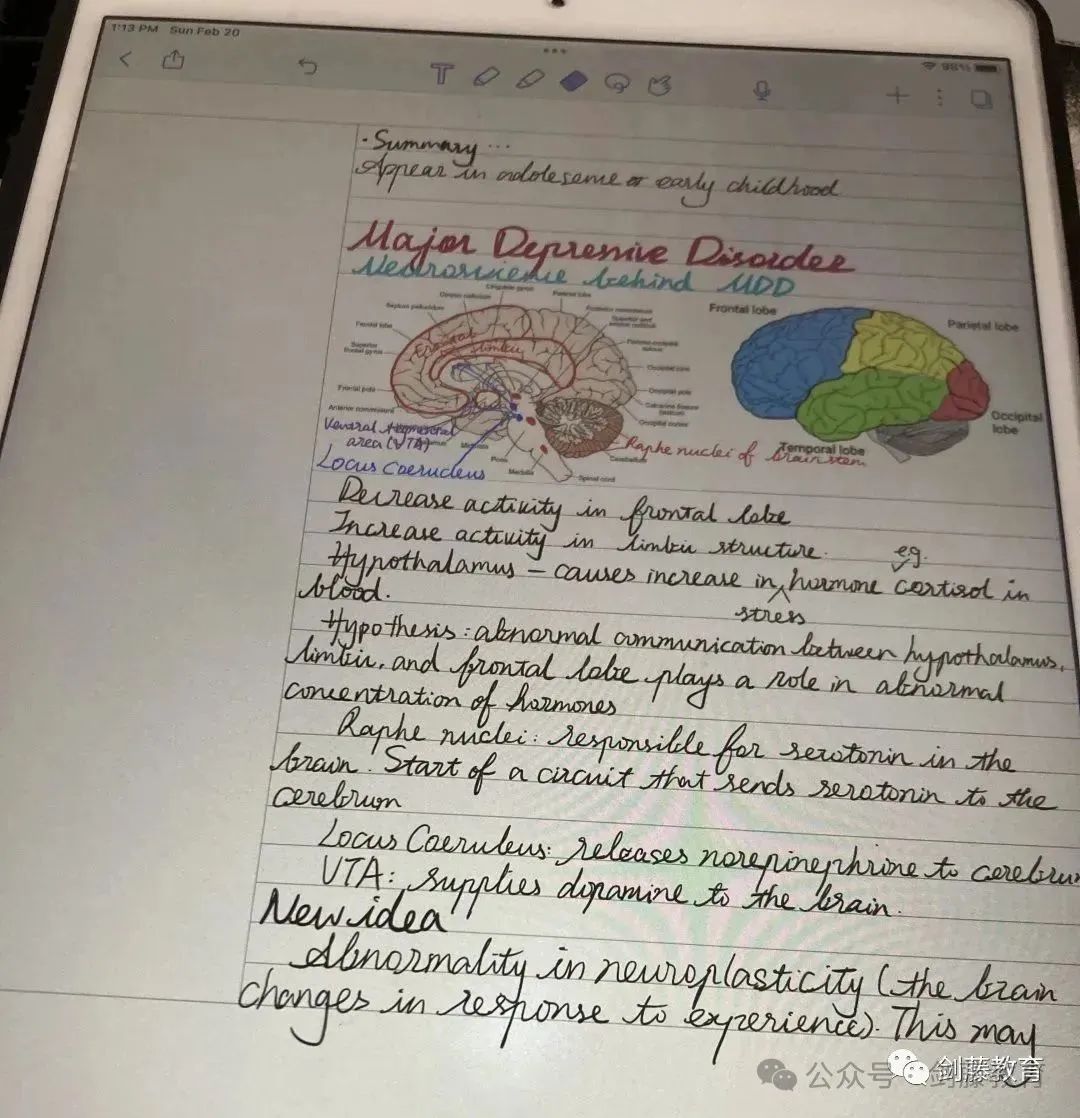 1:13 PM Sun Feb 20
98%
T
· Summary ...
Appear in adolesence or early childhood
Major Depressive Disorder
Neuroscience behind MDD
Cingulate gyrus
Parietal lobe
Corpus callosum
Septum pellucidum
Frontal lobe
Superior frontal gyrus
Frontal
limbic
Frontal pole
Anterior commissure
Occipital pole
Calcarine fissure
Occipital cortex
Ventral tegmental
area (VTA)
Locus Coeruleus
Pons
Medulla
Cerebellum
Spinal cord
Raphe nuclei of brainstem
Frontal lobe
Parietal lobe
Occipital lobe
Temporal lobe
Decrease activity in frontal lobe
Increase activity in limbic structure.
eg.
Hypothalamus – causes increase in stress hormone cortisol in
blood.
Hypothesis: abnormal communication between hypothalamus,
limbic, and frontal lobe plays a role in abnormal
concentration of hormones
Raphe nuclei: responsible for serotonin in the
brain. Start of a circuit that sends serotonin to the
cerebrum
Locus Coeruleus: releases norepinephrine to cerebrum
VTA: supplies dopamine to the brain.
New idea
Abnormality in neuroplasticity (the brain
changes in response to experience). This may
公众号 剑藤教育
剑藤教育